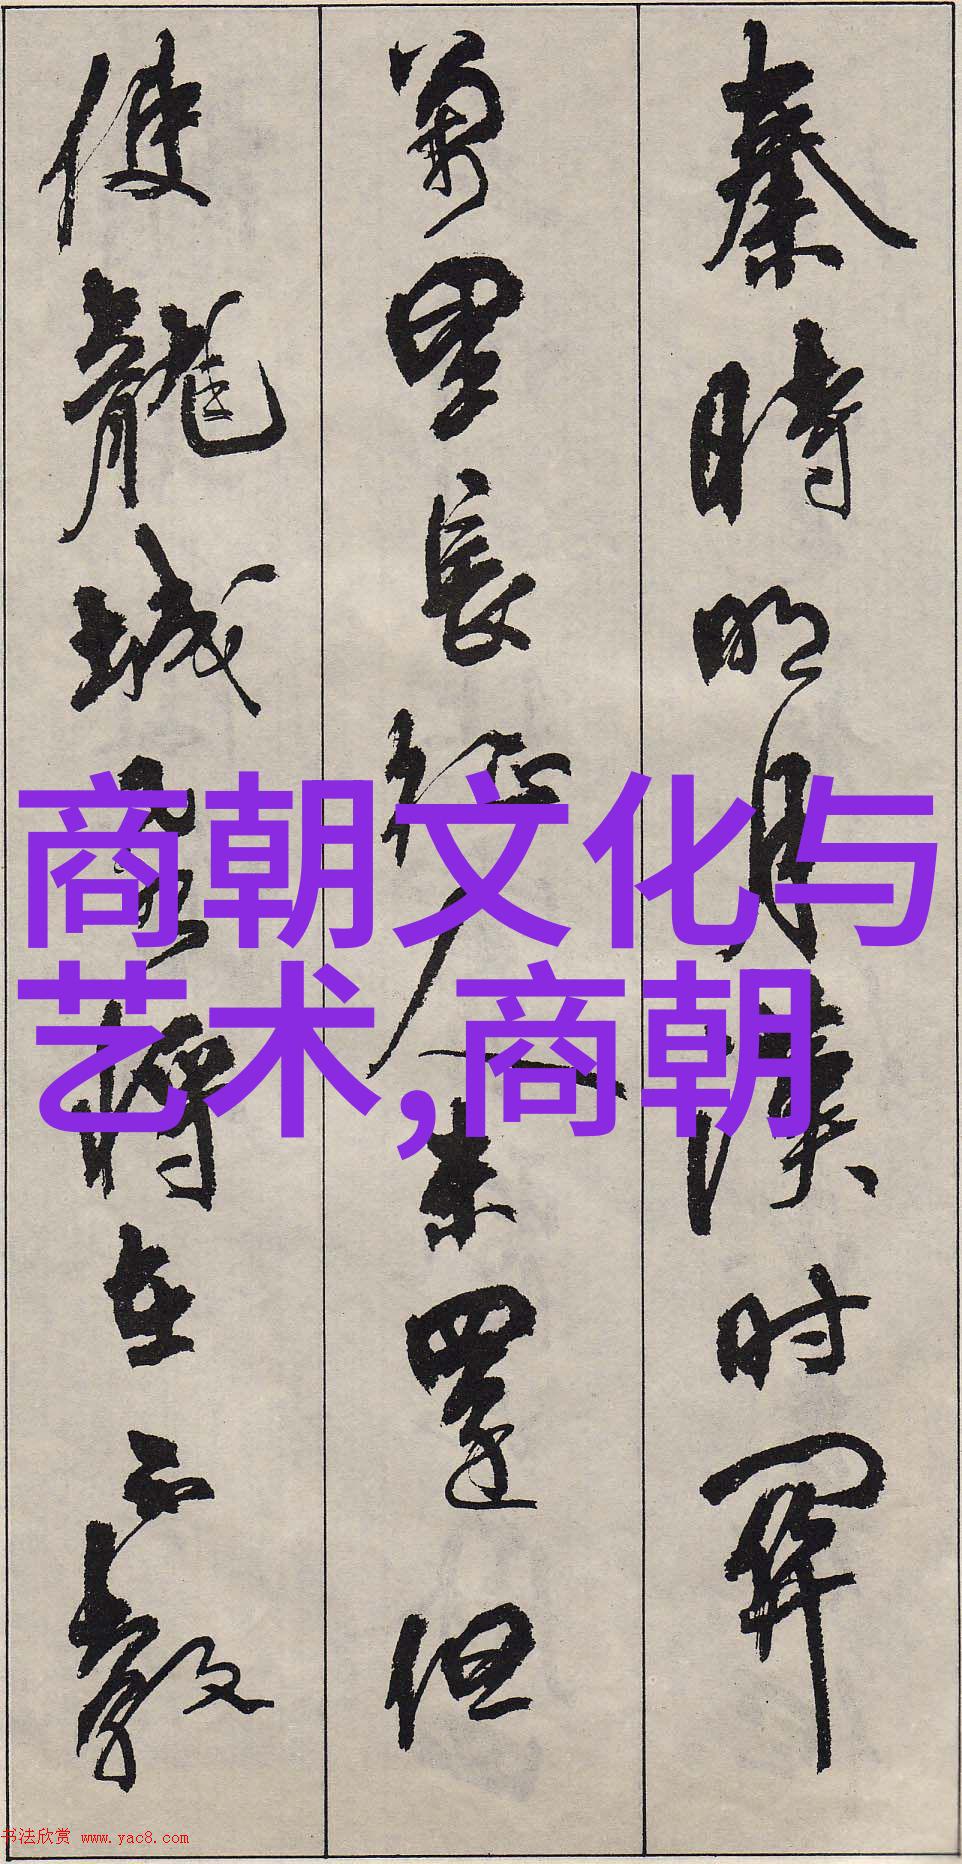 秦時明月漢时關
萬里長征人未還但
使龍城飛將在不教
商朝文化与
艺术,商朝
书法欣赏 www.yac8.com